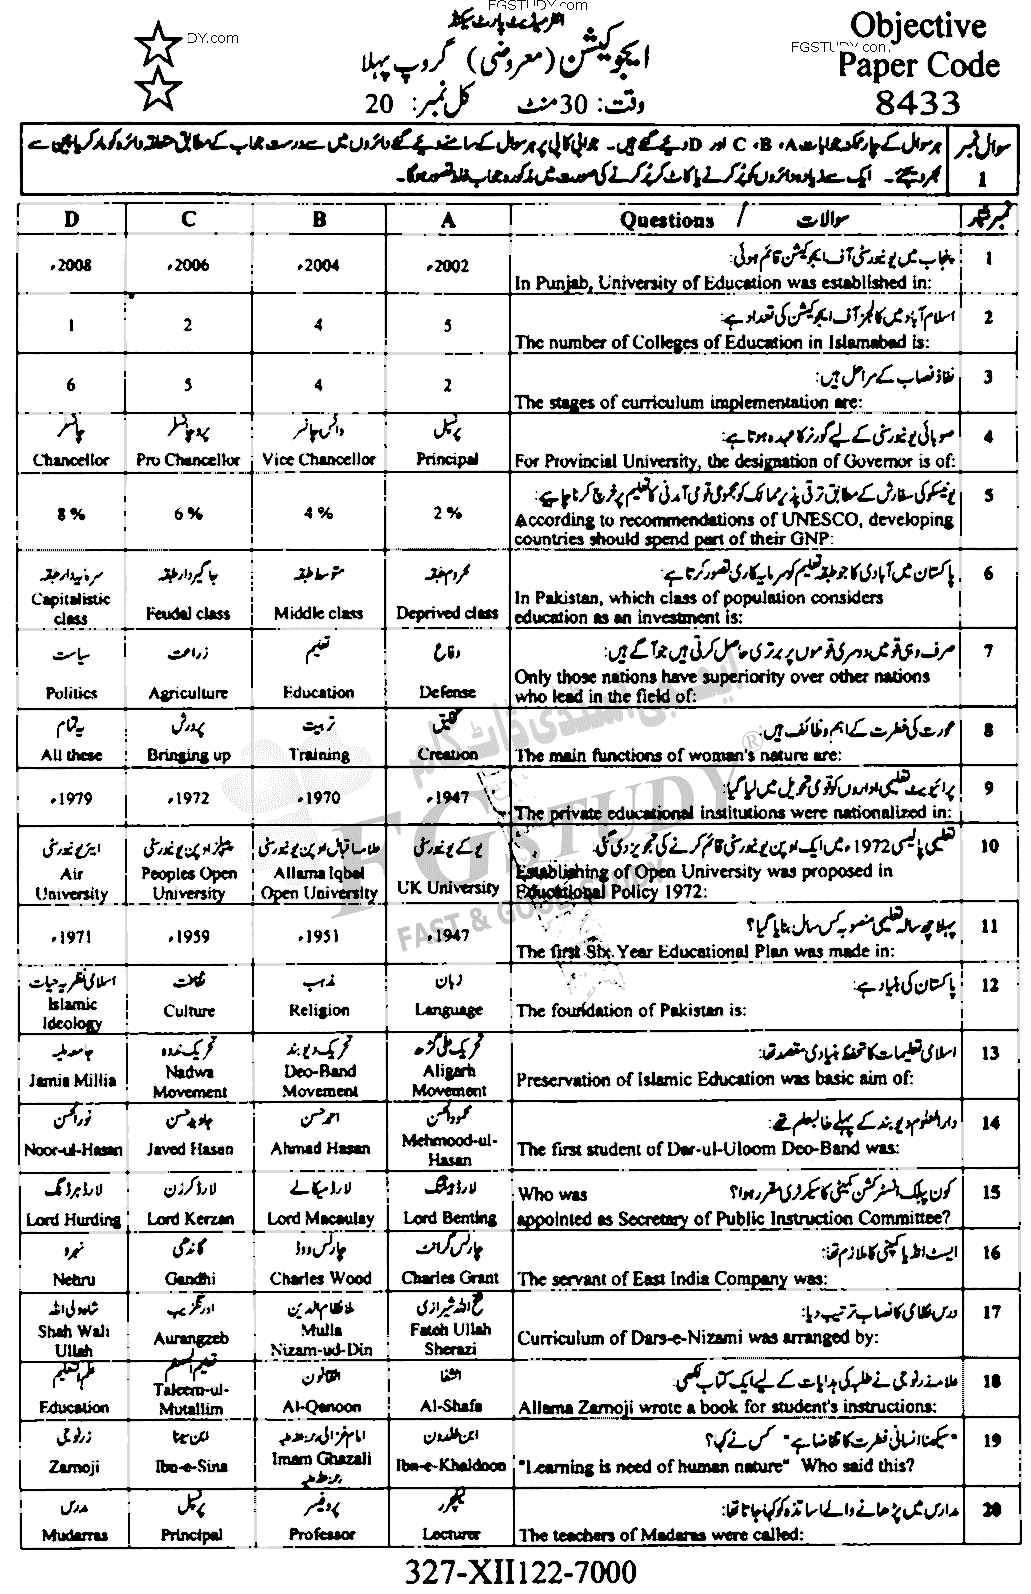 FGSTUDY.com
انٹرمیڈیٹ پارٹ سیکنڈ
DY.com
ایجوکیشن (معروضی) گروپ پہلا
وقت: 30 منٹ کل نمبر: 20
Objective
FGSTUDY.con
Paper Code
8433
سوال نمبر 1
ہر سوال کے چار ممکنہ جوابات A، B، C اور D دیئے گئے ہیں۔ جوابی کاپی پر ہر سوال کے سامنے دیئے گئے دائروں میں سے درست جواب کے مطابق متعلقہ دائرہ کو مارکر یا پین سے
بھر دیجئے۔ ایک سے زیادہ دائروں کو پُر کرنے یا کاٹ کر پُر کرنے کی صورت میں مذکورہ جواب غلط تصور ہوگا۔
D C B A Questions / سوالات نمبر شمار
1 پنجاب میں یونیورسٹی آف ایجوکیشن قائم ہوئی:
In Punjab, University of Education was established in:
2002ء 2004ء 2006ء 2008ء
2 اسلام آباد میں کالجز آف ایجوکیشن کی تعداد ہے:
The number of Colleges of Education in Islamabad is:
5 4 2 1
3 نفاذ نصاب کے مراحل ہیں:
The stages of curriculum implementation are:
2 4 5 6
4 صوبائی یونیورسٹی کے لیے گورنر کا عہدہ ہوتا ہے:
For Provincial University, the designation of Governor is of:
پرنسپل وائس چانسلر پرو چانسلر چانسلر
Principal Vice Chancellor Pro Chancellor Chancellor
5 یونیسکو کی سفارش کے مطابق ترقی پذیر ممالک کو مجموعی قومی آمدنی کا تعلیم پر خرچ کرنا چاہیے:
According to recommendations of UNESCO, developing
countries should spend part of their GNP:
2% 4% 6% 8%
6 پاکستان میں آبادی کا جو طبقہ تعلیم کو سرمایہ کاری تصور کرتا ہے:
In Pakistan, which class of population considers
education as an investment is:
محروم طبقہ متوسط طبقہ جاگیردار طبقہ سرمایہ دار طبقہ
Deprived class Middle class Feudal class Capitalistic class
7 صرف وہی قومیں دوسری قوموں پر برتری حاصل کرتی ہیں جو آگے ہیں:
Only those nations have superiority over other nations
who lead in the field of:
دفاع تعلیم زراعت سیاست
Defense Education Agriculture Politics
8 عورت کی فطرت کے اہم وظائف ہیں:
The main functions of woman's nature are:
تخلیق تربیت پرورش یہ تمام
Creation Training Bringing up All these
9 پرائیویٹ تعلیمی اداروں کو قومی تحویل میں لیا گیا:
The private educational institutions were nationalized in:
1947ء 1970ء 1972ء 1979ء
10 تعلیمی پالیسی 1972ء میں ایک اوپن یونیورسٹی قائم کرنے کی تجویز دی گئی:
Establishing of Open University was proposed in
Educational Policy 1972:
یو کے یونیورسٹی علامہ اقبال اوپن یونیورسٹی پیپلز اوپن یونیورسٹی ایئر یونیورسٹی
UK University Allama Iqbal Open University Peoples Open University Air University
11 پہلا چھ سالہ تعلیمی منصوبہ کس سال بنایا گیا؟
The first Six Year Educational Plan was made in:
1947ء 1951ء 1959ء 1971ء
12 پاکستان کی بنیاد ہے:
The foundation of Pakistan is:
زبان مذہب ثقافت اسلامی نظریہ حیات
Language Religion Culture Islamic Ideology
13 اسلامی تعلیمات کا تحفظ بنیادی مقصد تھا:
Preservation of Islamic Education was basic aim of:
تحریک علی گڑھ تحریک دیوبند تحریک ندوہ جامعہ ملیہ
Aligarh Movement Deo-Band Movement Nadwa Movement Jamia Millia
14 دارالعلوم دیوبند کے پہلے طالبعلم تھے:
The first student of Dar-ul-Uloom Deo-Band was:
محمود الحسن احمد حسن جاوید حسن نور الحسن
Mehmood-ul-Hasan Ahmad Hasan Javed Hasan Noor-ul-Hasan
15 کون پبلک انسٹرکشن کمیٹی کا سیکرٹری مقرر ہوا؟
Who was
appointed as Secretary of Public Instruction Committee?
لارڈ بینٹنگ لارڈ میکالے لارڈ کرزن لارڈ ہرڈنگ
Lord Benting Lord Macaulay Lord Kerzan Lord Hurding
16 ایسٹ انڈیا کمپنی کا ملازم تھا:
The servant of East India Company was:
چارلس گرانٹ چارلس ووڈ گاندھی نہرو
Charles Grant Charles Wood Gandhi Nehru
17 درس نظامی کا نصاب ترتیب دیا:
Curriculum of Dars-e-Nizami was arranged by:
فتح اللہ شیرازی ملا نظام الدین اورنگزیب شاہ ولی اللہ
Fateh Ullah Sherazi Mulla Nizam-ud-Din Aurangzeb Shah Wali Ullah
18 علامہ زرنوجی نے طلبہ کی ہدایات کے لیے ایک کتاب لکھی:
Allama Zarnoji wrote a book for student's instructions:
الشفا القانون تعلیم المتعلم علم التعلیم
Al-Shafa Al-Qanoon Taleem-ul-Mutallim Education
19 "سیکھنا انسانی فطرت کا تقاضا ہے" کس نے کہا؟
"Learning is need of human nature" Who said this?
ابن خلدون امام غزالی رحمۃ اللہ علیہ ابن سینا زرنوجی
Ibn-e-Khaldoon Imam Ghazali رحمۃ اللہ علیہ Ibn-e-Sina Zarnoji
20 مدارس میں پڑھانے والے اساتذہ کو کہا جاتا تھا:
The teachers of Madaras were called:
لیکچرر پروفیسر پرنسپل مدرس
Lecturer Professor Principal Mudarras
327-XII122-7000
ایف جی سٹڈی ڈاٹ کام
FG STUDY®
FAST & GOOD STUDY